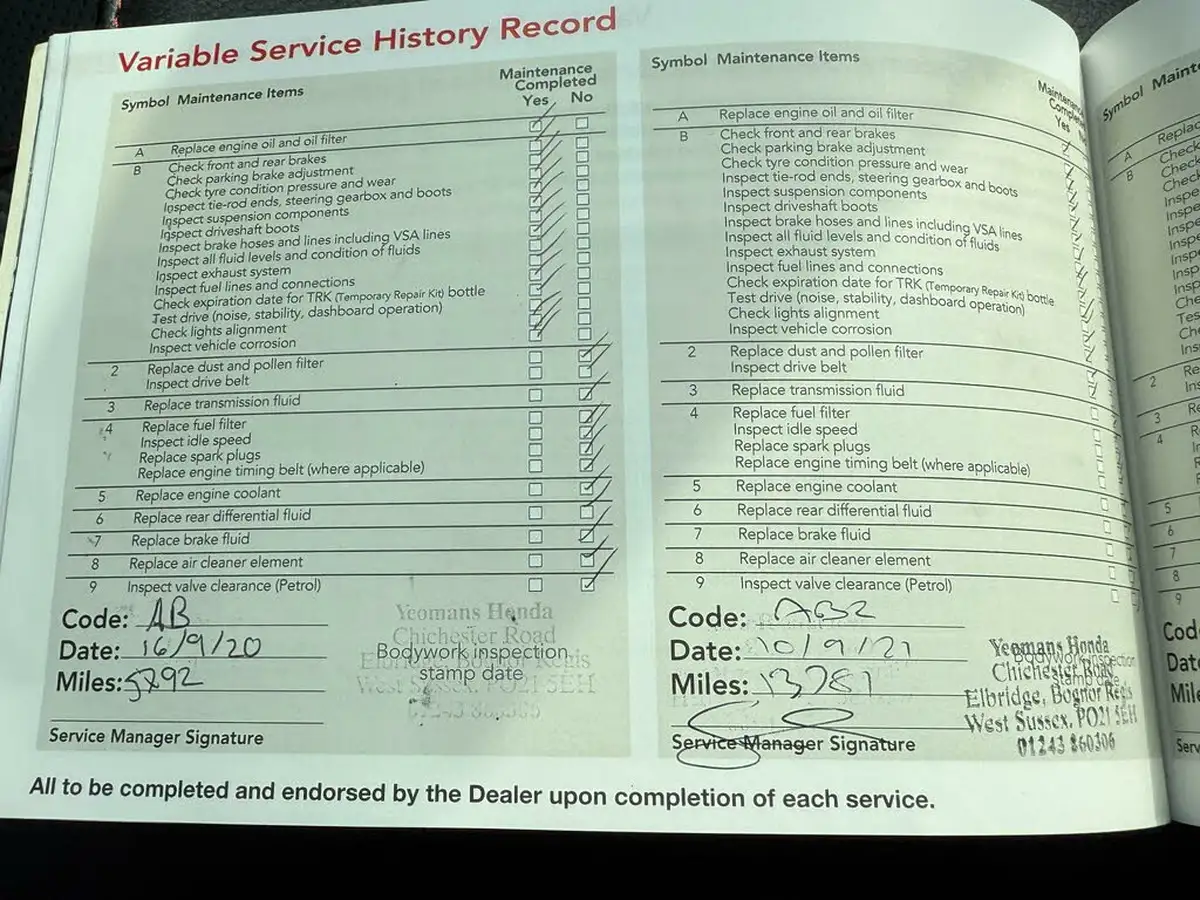 Variable Service History Record
Symbol Maintenance Items
Maintenance
Completed
Yes No
A Replace engine oil and oil filter
B Check front and rear brakes
Check parking brake adjustment
Check tyre condition pressure and wear
Inspect tie-rod ends, steering gearbox and boots
Inspect suspension components
Inspect driveshaft boots
Inspect brake hoses and lines including VSA lines
Inspect all fluid levels and condition of fluids
Inspect exhaust system
Inspect fuel lines and connections
Check expiration date for TRK (Temporary Repair Kit) bottle
Test drive (noise, stability, dashboard operation)
Check lights alignment
Inspect vehicle corrosion
2 Replace dust and pollen filter
Inspect drive belt
3 Replace transmission fluid
4 Replace fuel filter
Inspect idle speed
Replace spark plugs
Replace engine timing belt (where applicable)
5 Replace engine coolant
6 Replace rear differential fluid
7 Replace brake fluid
8 Replace air cleaner element
9 Inspect valve clearance (Petrol)
Code: AB
Date: 16/9/20
Miles: 5792
Yeomans Honda
Chichester Road
Bodywork inspection
stamp date
Elbridge, Bognor Regis
West Sussex, PO21 5EH
Service Manager Signature
Symbol Maintenance Items
Maintenance
Yes
A Replace engine oil and oil filter
B Check front and rear brakes
Check parking brake adjustment
Check tyre condition pressure and wear
Inspect tie-rod ends, steering gearbox and boots
Inspect suspension components
Inspect driveshaft boots
Inspect brake hoses and lines including VSA lines
Inspect all fluid levels and condition of fluids
Inspect exhaust system
Inspect fuel lines and connections
Check expiration date for TRK (Temporary Repair Kit) bottle
Test drive (noise, stability, dashboard operation)
Check lights alignment
Inspect vehicle corrosion
2 Replace dust and pollen filter
Inspect drive belt
3 Replace transmission fluid
4 Replace fuel filter
Inspect idle speed
Replace spark plugs
Replace engine timing belt (where applicable)
5 Replace engine coolant
6 Replace rear differential fluid
7 Replace brake fluid
8 Replace air cleaner element
9 Inspect valve clearance (Petrol)
Code: AB2
Date: 10/9/21
Miles: 13781
Yeomans Honda
Bodywork inspection
Chichester Road
stamp date
Elbridge, Bognor Regis
West Sussex, PO21 5EH
01243 860306
Service Manager Signature
All to be completed and endorsed by the Dealer upon completion of each service.
Symbol
A
B
2
3
4
5
6
7
8
9